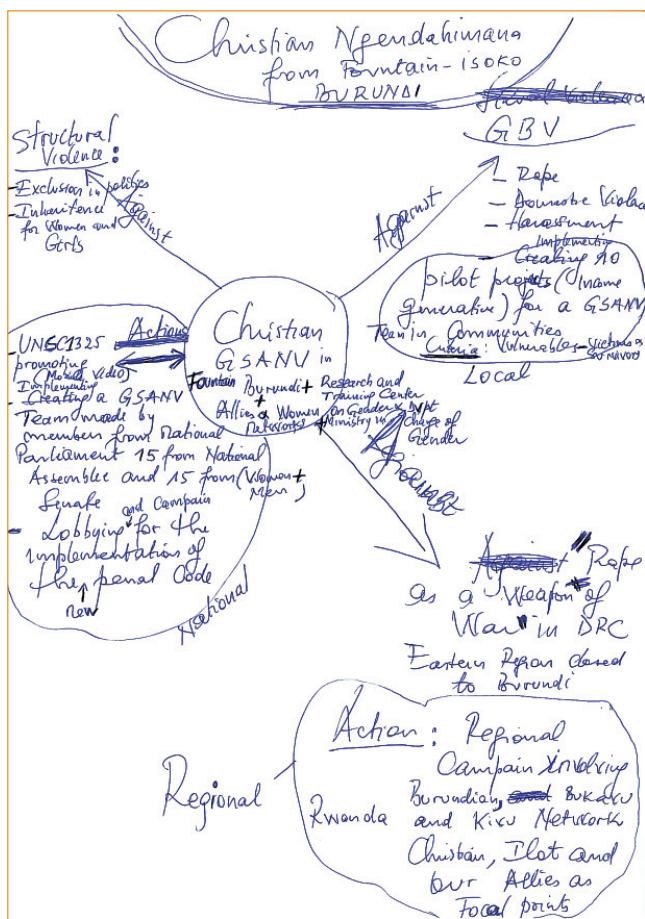 Christian Ngendahimana
from Fountain-ISOKO
BURUNDI
Structural
Violence :
- Exclusion in politics
- Inheritence
for Women and
Girls
Against
Against
GBV
- Rape
- Domestic
- Harassment
Implementing
- Creating 10
pilot projects (Income
generative) for a GSANV
Team in Communities
Criteria : Vulnerables - Victims or
Survivors
Local
Christian
GSANV in
Fountain Burundi +
+
Allies & Women
networks
Research and
Training Center
on Gender
+ Ministry in
Charge of
Gender
Actions
- UNSC1325
promoting
(Mobile Video)
Implementing
- Creating a GSANV
Team made by
member from National
Parliament 15 from National
Assemblee and 15 from (Women +
Men)
Senate
- Lobbying and Campain for the
implementation of
the new penal Code
National
Against
"Rape
as a Weapon of
War" in DRC
Eastern Region closed
to Burundi
Regional
Action : Regional
Campain involving
Burundian, Bukavu
Rwanda and Kivu Network
Christian, Ilot and
our Allies as
Focal points